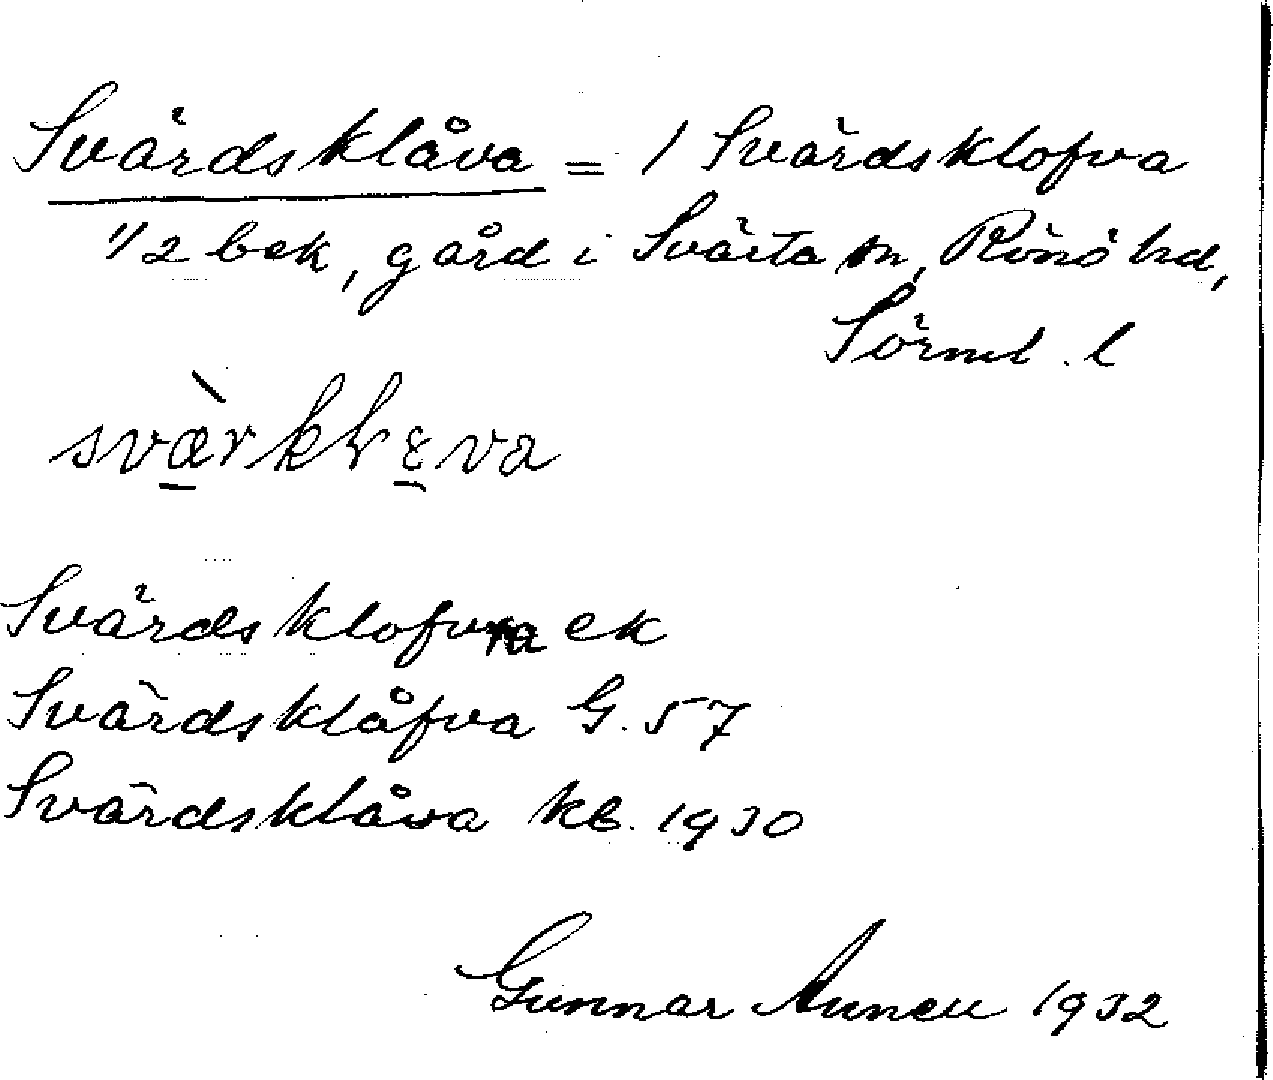 Svärdsklåva = 1 Svärdsklofva
1/2 bek, gård i Svärta sn, Rönö hd,
Sörml. l
Svärdsklofva ek
Svärdsklåfva G. 57
Svärdsklåva kb. 1930
Gunnar 1932